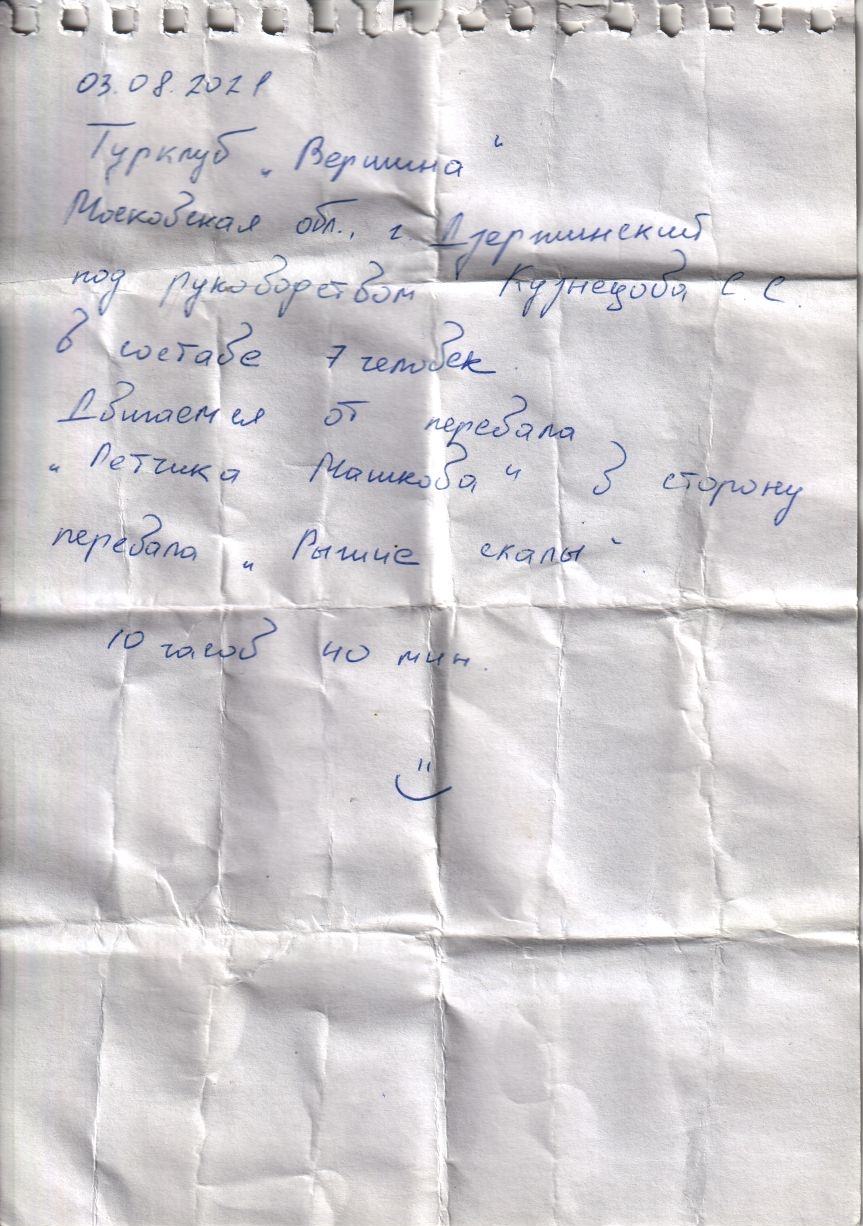 03.08.2021
Турклуб „Вершина“
Московская обл., г. Дзержинский
под руководством Кузнецова С. С.
в составе 7 человек.
Двигаемся от перевала
„Летчика Машкова“ в сторону
перевала „Рыжие скалы“.
10 часов 40 мин.